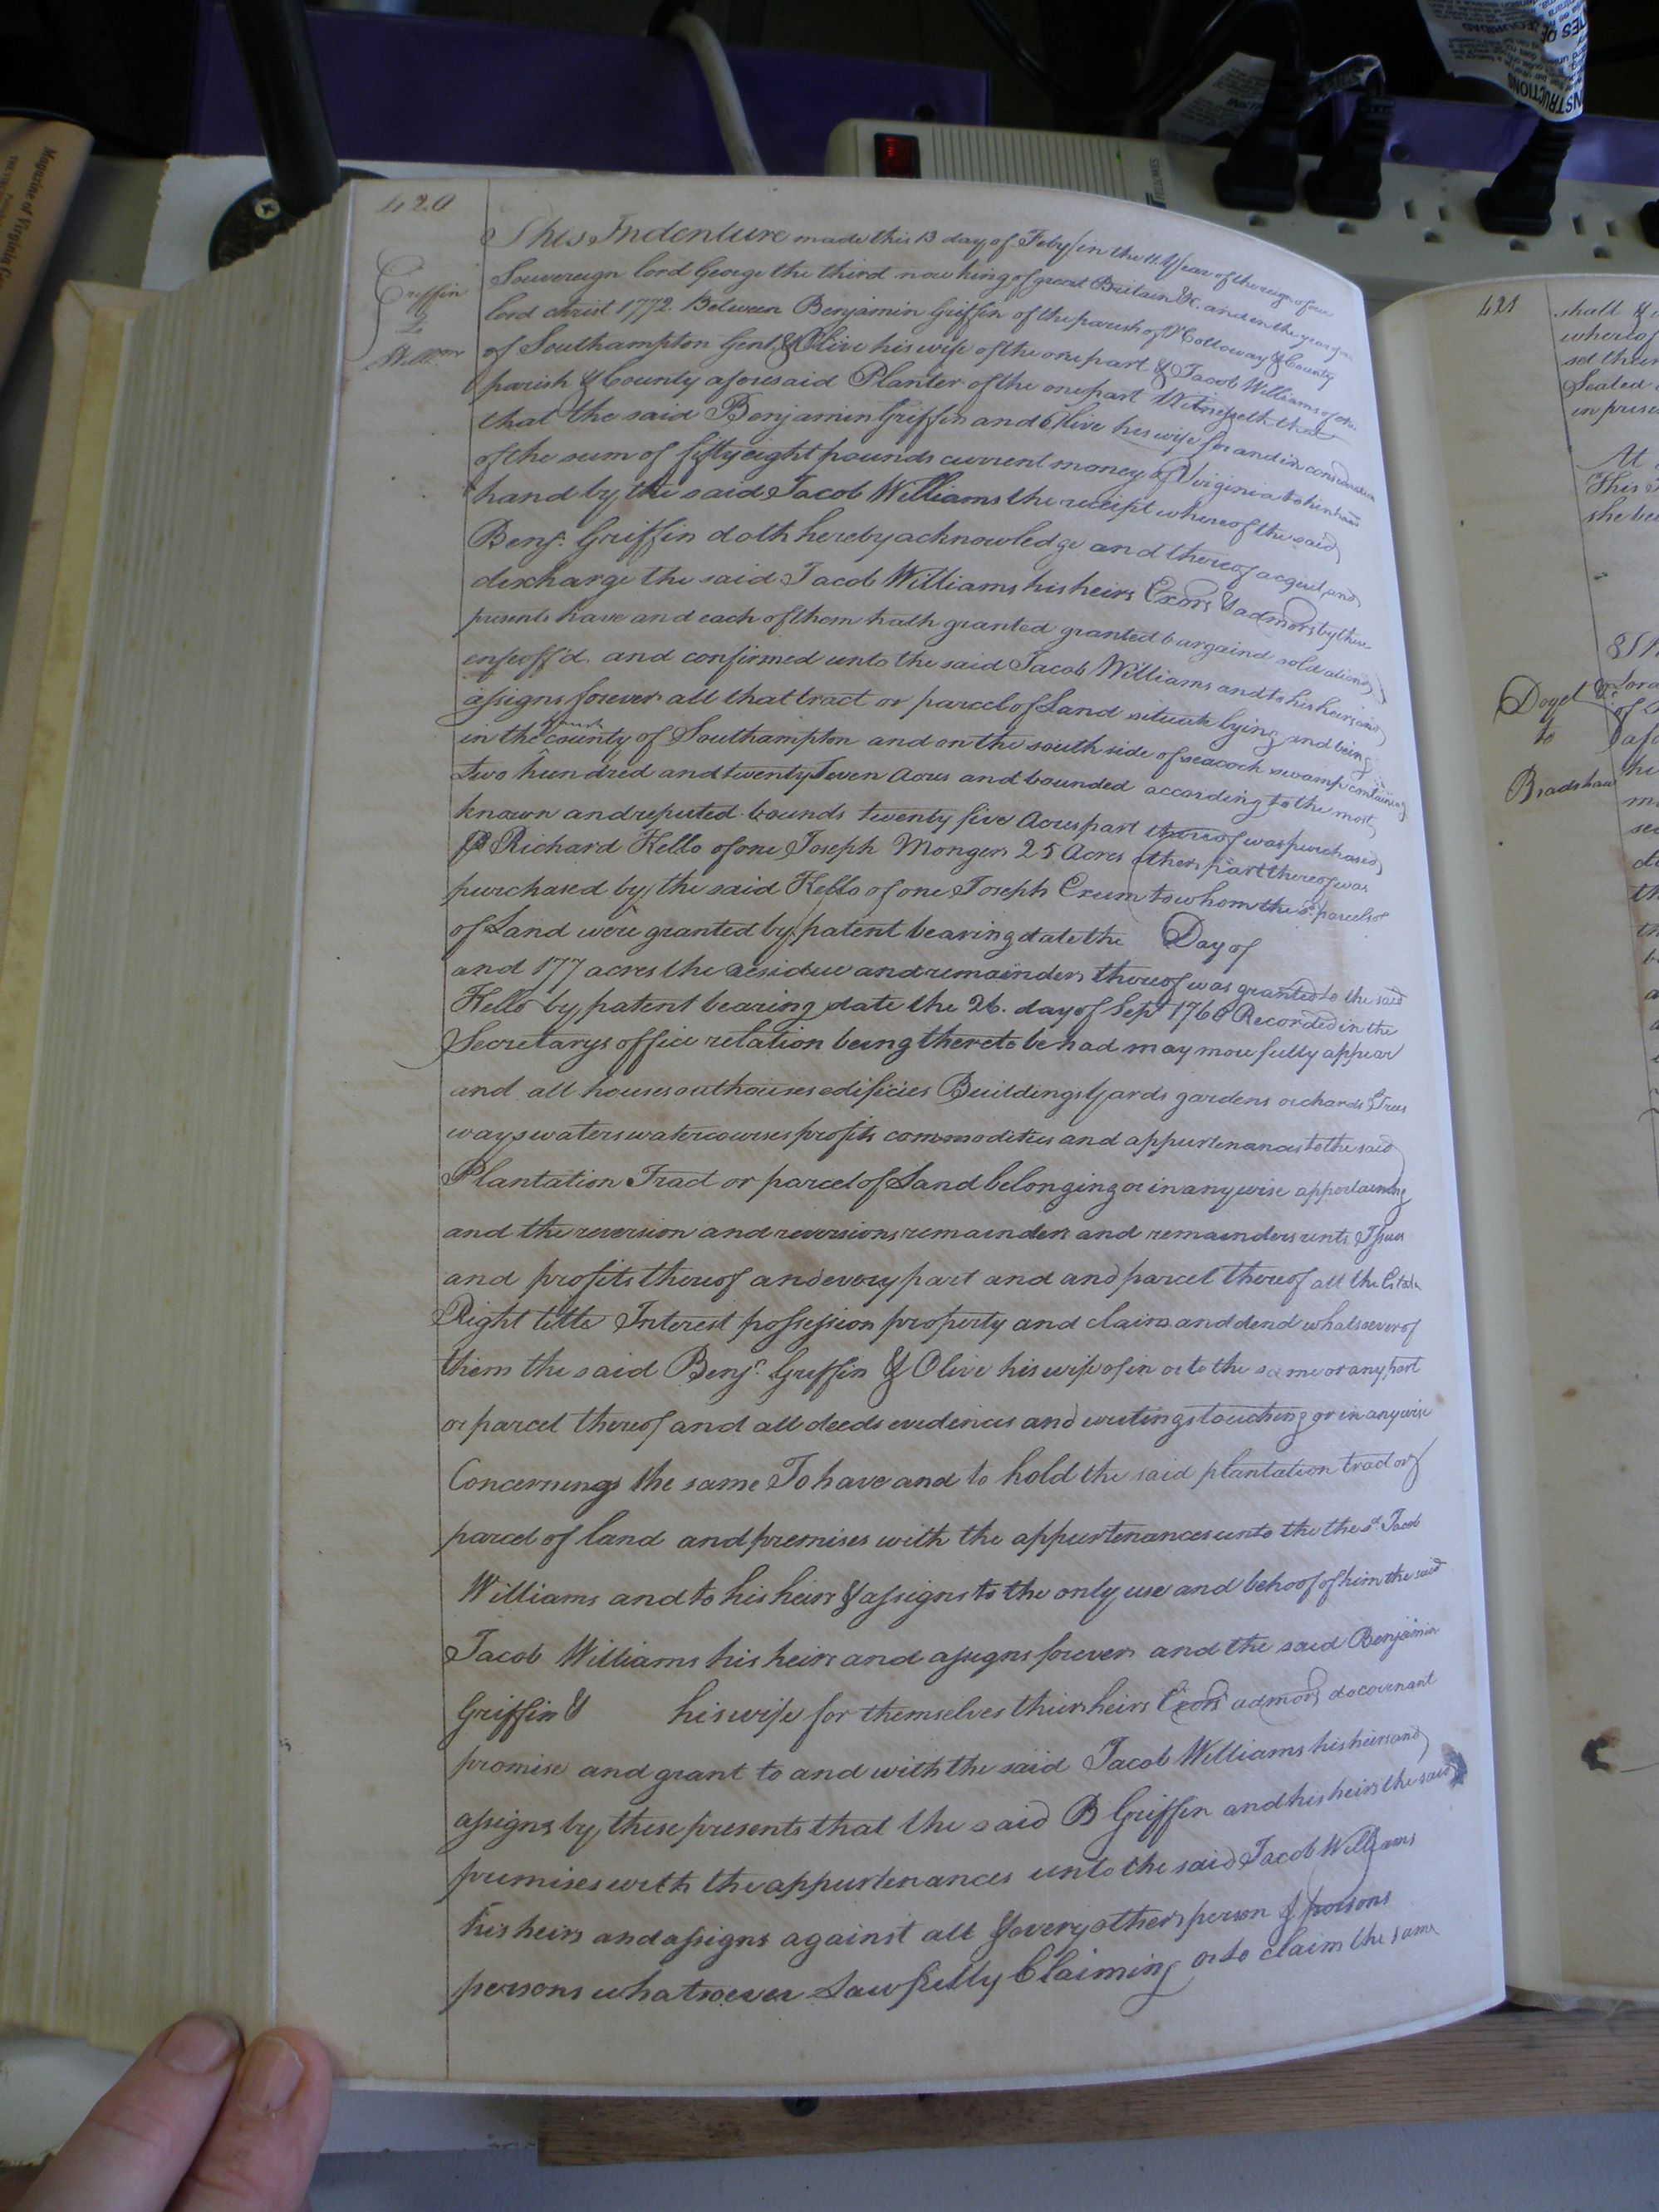 420
This Indenture made this 13 day of Feby in the 11 Year of the reign of our
Griffin
to
Willms
Sovereign lord George the third now king of great Britain &c. and in the year of
lord christ 1772 Between Benjamin Griffin of the parish of & County
of Southampton Gent & Olive his wife of the one part & Jacob Williams of the
parish & County aforesaid Planter of the one part Witnesseth that
that the said Benjamin Griffin and Olive his wife for and in consideration
of the sum of fifty eight pounds current money of Virginia to him
hand by the said Jacob Williams the receipt whereof the said
Benj.n Griffin doth hereby acknowledge and thereof acquit and
descharge the said Jacob Williams his heirs Exors & admors by these
presents have and each of them hath granted granted bargaind sold
enfeoff'd. and confirmed unto the said Jacob Williams and to his heirs and
assigns forever all that tract or parcel of Land situate lying and being
in the county of Southampton and on the south side of seacock swamp containing
parish
two hundred and twenty seven Acres and bounded according to the most
known and reputed bounds twenty five Acres part thereof was purchased
P Richard Kello of one Joseph Monger 25 Acres other part thereof was
purchased by the said Kello of one Joseph Exum to whom the sd parcels of
of Land were granted by patent bearing date the Day of
and 177 acres the residue and remainder thereof was granted to the said
Kello by patent bearing date the 26. day of Sept 1760 Recorded in the
Secretarys office relation being thereto be had may more fully appear
and all houses outhouses edificies Buildings Yards gardens orchards Trees
ways waters watercourses profits commodities and appurtenances to the said
Plantation Tract or parcel of Land belonging or in any wise appertaining
and the reversion and reversions remainder and remainders rents Issues
and profits thereof and every part and and parcel thereof all the Estate
Right title Interest possession property and claim and dend whatsoever of
them the said Benj.n Griffin & Olive his wife of in or to the same or any part
or parcel thereof and all deeds evidences and writings touching or in any wise
Concerning the same To have and to hold the said plantation tract or
parcel of land and premises with the appurtenances unto the the sd. Jacob
Williams and to his heirs & assigns to the only use and behoof of him the said
Jacob Williams his heirs and assigns forever and the said Benjamin
Griffin & his wife for themselves their heirs Exors admors do covenant
promise and grant to and with the said Jacob Williams his heirs and
assigns by these presents that the said B Griffin and his heirs the said
premises with the appurtenances unto the said Jacob Williams
his heirs and assigns against all & every other person & persons
persons whatsoever Lawfully Claiming or to claim the same
421
shall &
whereof
Sealed
At
This
she be
Doyel
to
Bradshaw
Magazine of Virginia
FELLOWES
INSTRUCTIONS